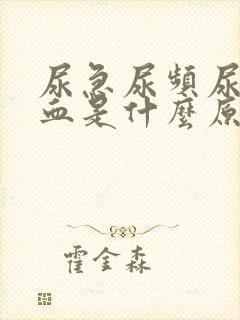 尿急尿頻尿
血是什麼原
霍金森